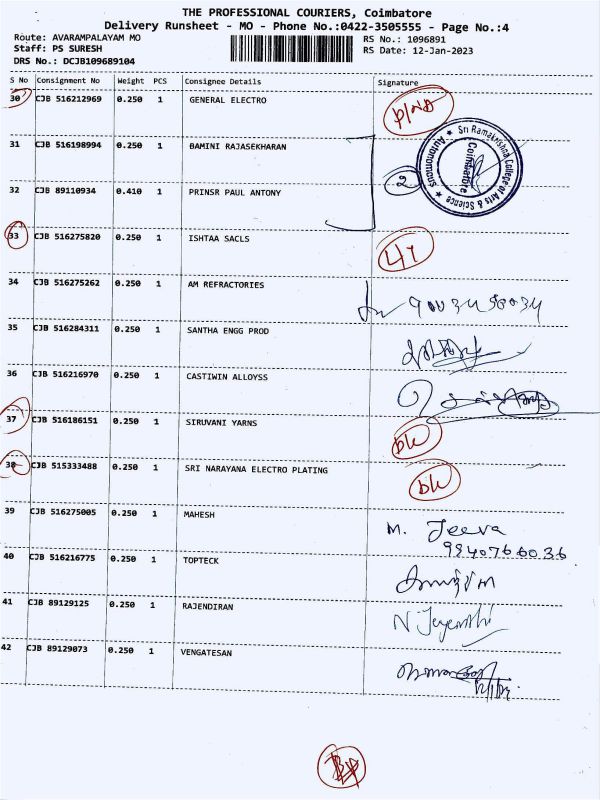 THE PROFESSIONAL COURIERS, Coimbatore
Delivery Runsheet - MO - Phone No.:0422-3505555 - Page No.:4
Route: AVARAMPALAYAM MO
Staff: PS SURESH
DRS No.: DCJB109689104
RS No.: 1096891
RS Date: 12-Jan-2023
S No Consignment No Weight PCS Consignee Details Signature
30 CJB 516212969 0.250 1 GENERAL ELECTRO
31 CJB 516198994 0.250 1 BAMINI RAJASEKHARAN
Sri Ramakrishna College of Arts & Science ★ Autonomous ★
Coimbatore
2
32 CJB 89110934 0.410 1 PRINSR PAUL ANTONY
33 CJB 516275820 0.250 1 ISHTAA SACLS
34 CJB 516275262 0.250 1 AM REFRACTORIES
35 CJB 516284311 0.250 1 SANTHA ENGG PROD
36 CJB 516216970 0.250 1 CASTIWIN ALLOYSS
37 CJB 516186151 0.250 1 SIRUVANI YARNS
38 CJB 515333488 0.250 1 SRI NARAYANA ELECTRO PLATING
39 CJB 516275005 0.250 1 MAHESH M. Jeeva
9840766036
40 CJB 516216775 0.250 1 TOPTECK
41 CJB 89129125 0.250 1 RAJENDIRAN
42 CJB 89129073 0.250 1 VENGATESAN